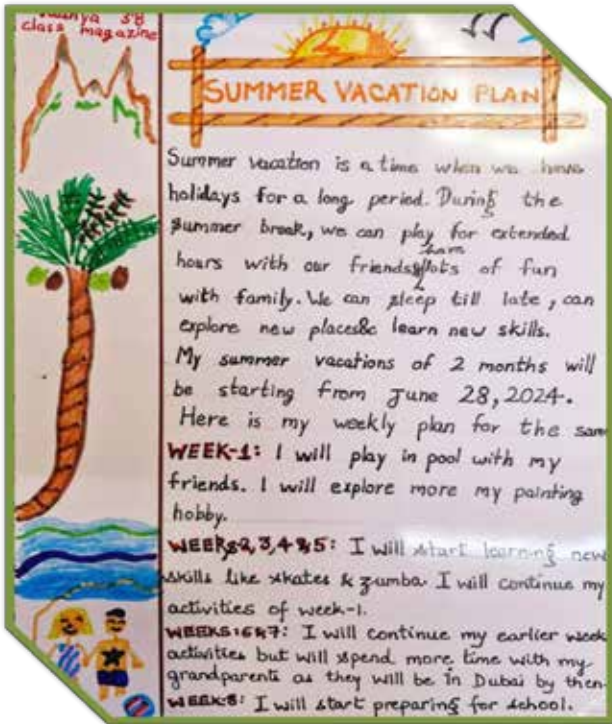 3B
class magazine
SUMMER VACATION PLAN
Summer vacation is a time when we have
holidays for a long period. During the
summer break, we can play for extended
hours with our friends & have lots of fun
with family. We can sleep till late, can
explore new places & learn new skills.
My summer vacations of 2 months will
be starting from June 28, 2024.
Here is my weekly plan for the same
WEEK-1: I will play in pool with my
friends. I will explore more my painting
hobby.
WEEKS 2,3,4 & 5: I will start learning new
skills like skates & zumba. I will continue my
activities of week-1.
WEEKS:6&7: I will continue my earlier week
activities but will spend more time with my
grandparents as they will be in Dubai by then.
WEEK-8: I will start preparing for school.